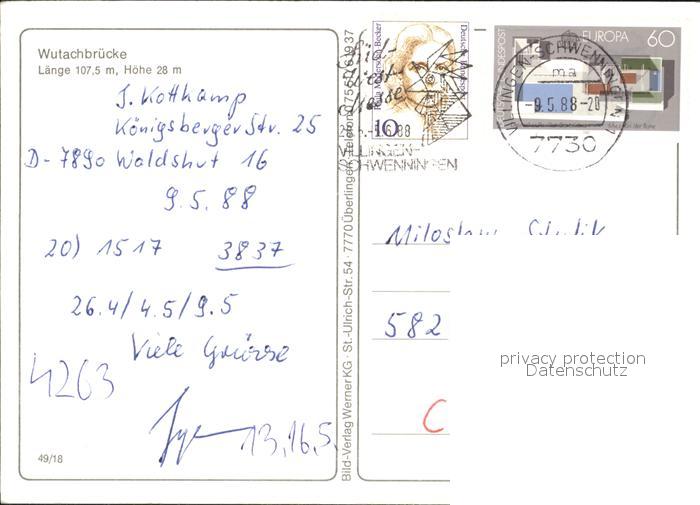 Wutachbrücke
Länge 107,5 m, Höhe 28 m
J. Kottkamp
Königsberger Str. 25
D-7890 Waldshut 16
9.5.88
20) 1517 3837
26.4/4.5/9.5
Viele Grüsse
4263
13,16.5.
49/18
Bild-Verlag Werner KG · St.-Ulrich-Str. 54 · 7770 Überlingen
Paula Modersohn-Becker
Deutsche Bundespost
10
VILLINGEN-
SCHWENNINGEN
EUROPA 60
VILLINGEN-SCHWENNINGEN
ma
-9.5.88-20
7730
582
C
privacy protection
Datenschutz